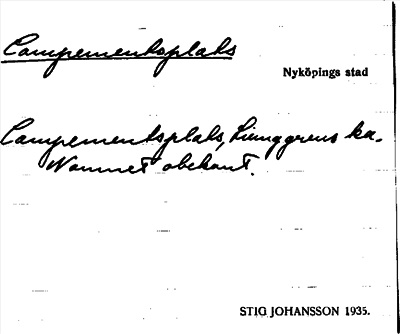 Campementsplats
Nyköpings stad
Campementsplats, Liunggrens ka.
Namnet obekant.
STIG JOHANSSON 1935.